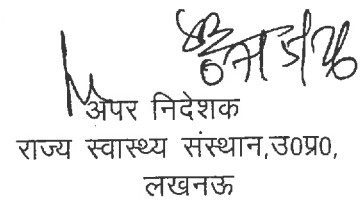 अपर निदेशक
राज्य स्वास्थ्य संस्थान,उ0प्र0,
लखनऊ